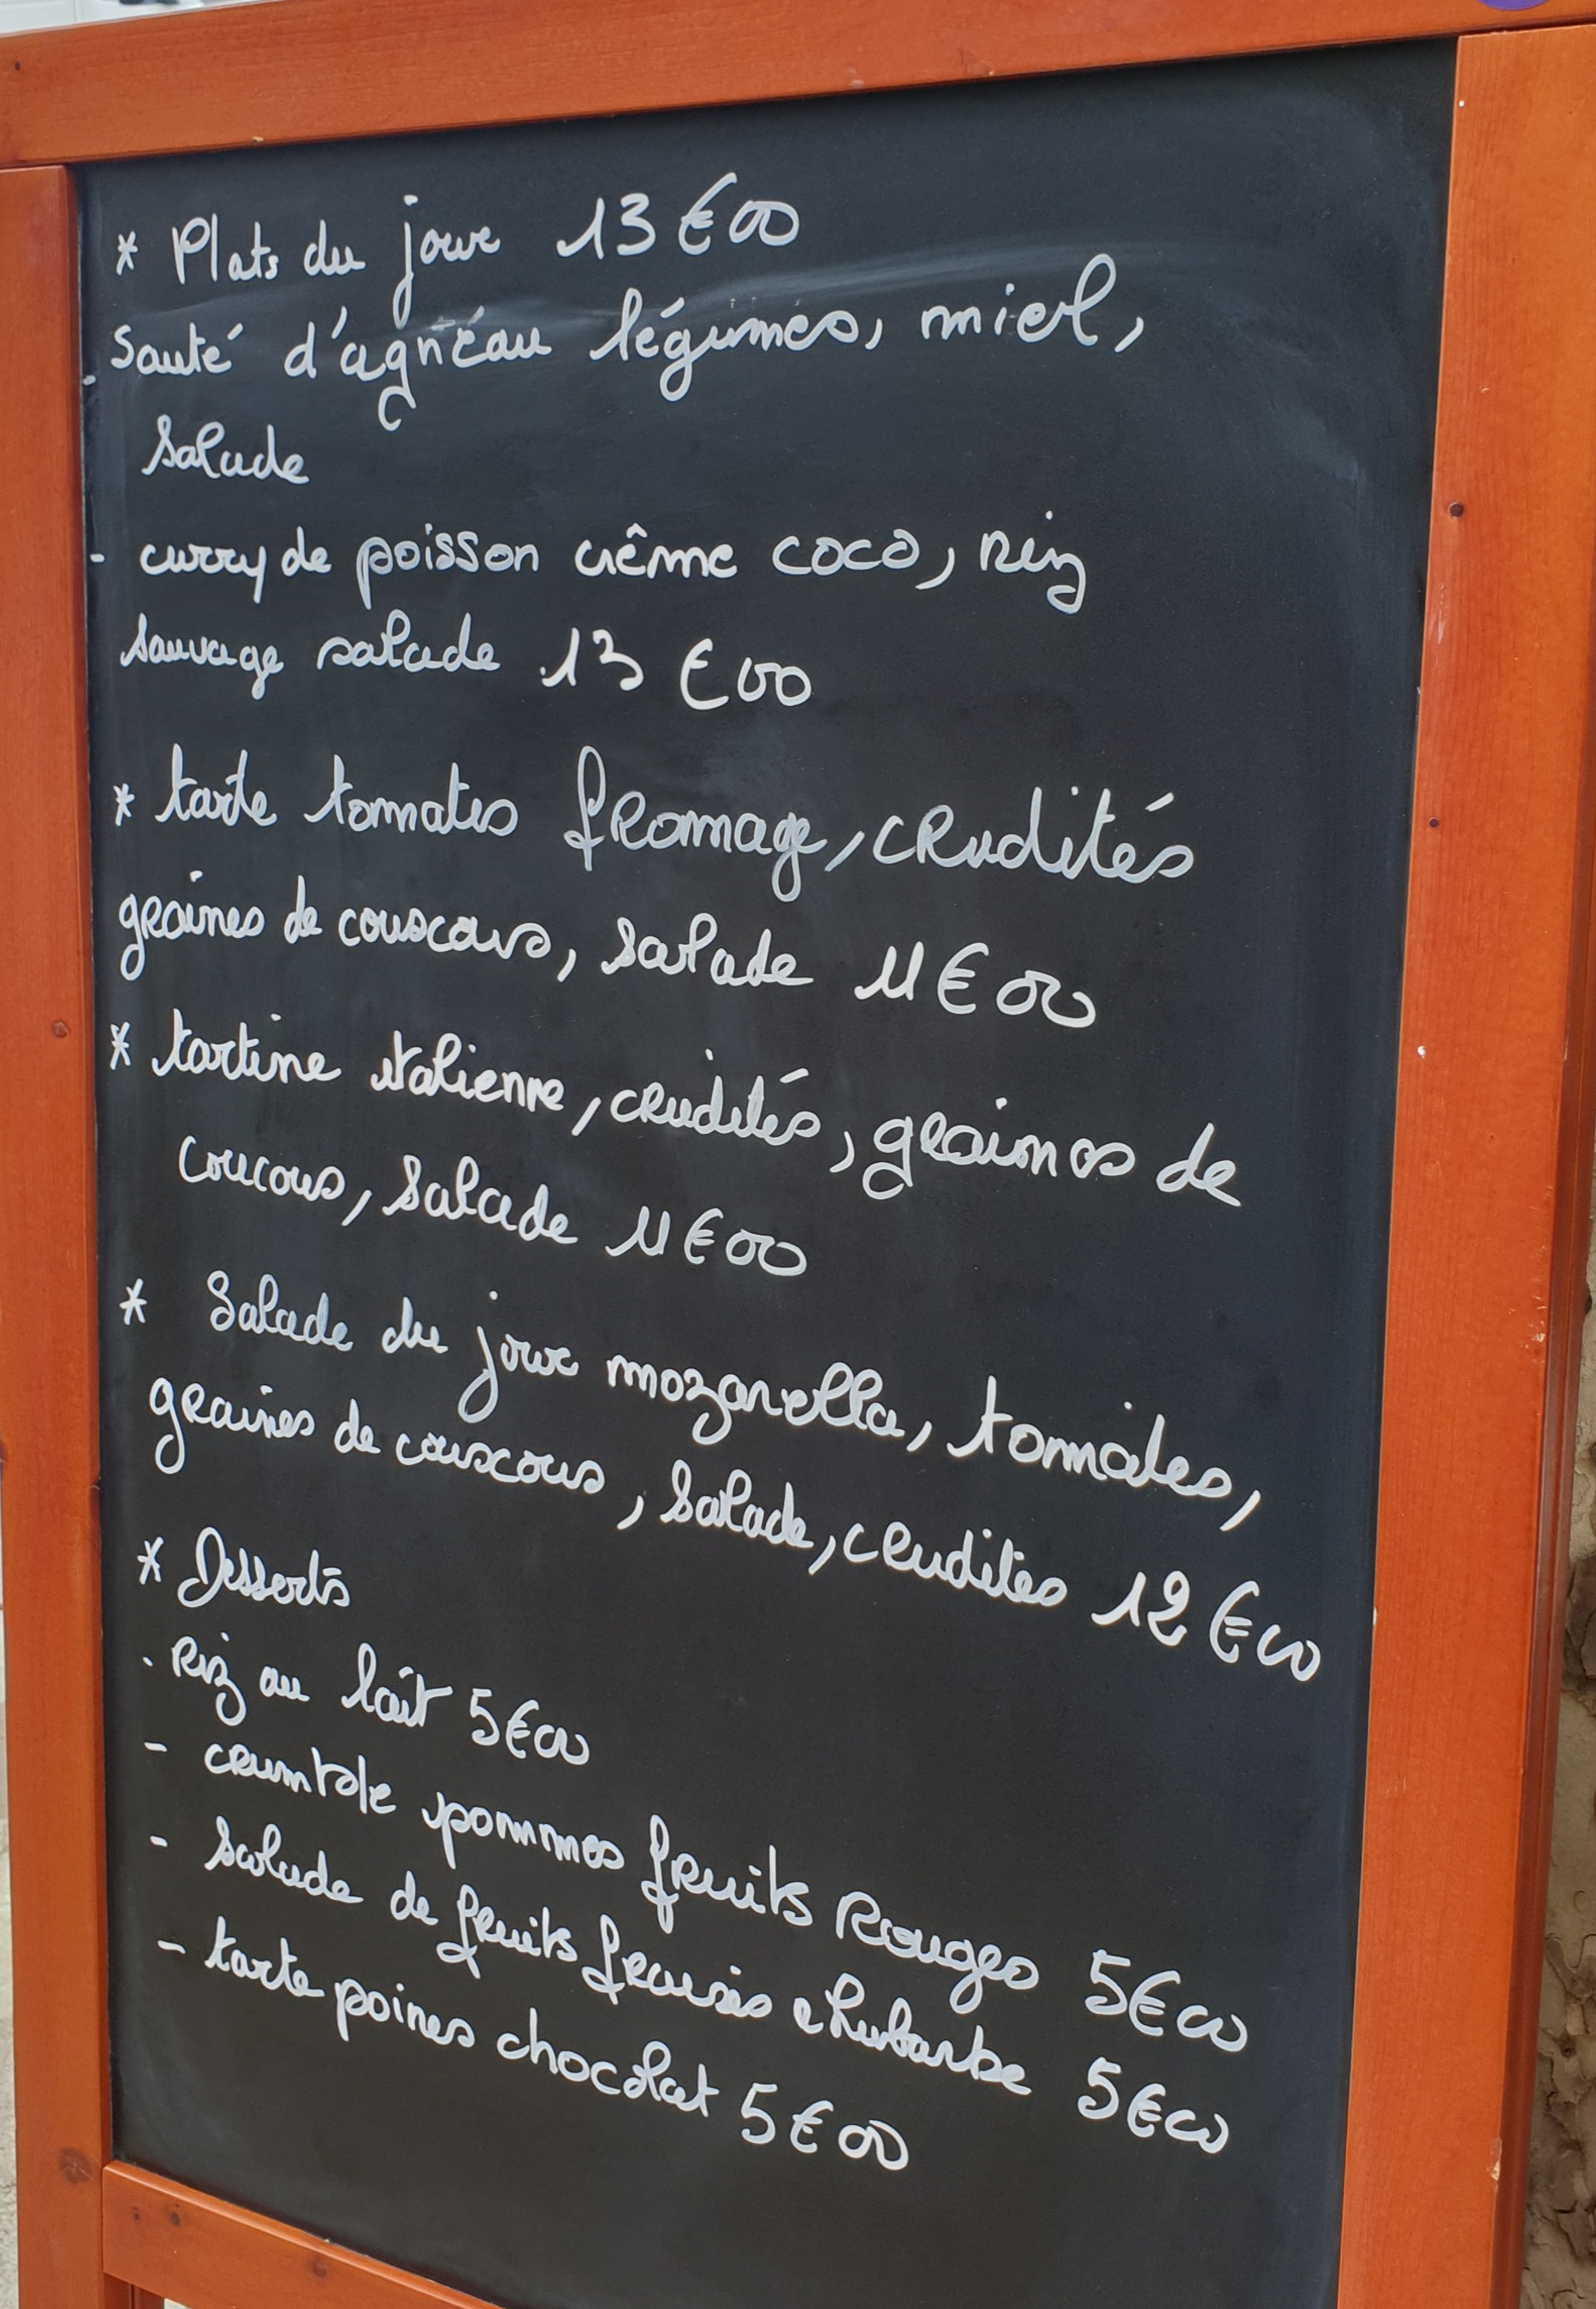 * Plats du jour 13€00
- Sauté d'agneau légumes, miel,
salade
- curry de poisson crême coco, riz
sauvage salade 13€00
* tarte tomates fromage, crudités
graines de couscous, salade 11€00
* tartine italienne, crudités, graines de
coucous, salade 11€00
* Salade du jour mozarella, tomates,
graines de couscous, salade, crudités 12€00
* Desserts
- Riz au lait 5€00
- crumble pommes fruits Rouges 5€00
- salade de fruits fraises rhubarbe 5€00
- tarte poires chocolat 5€00